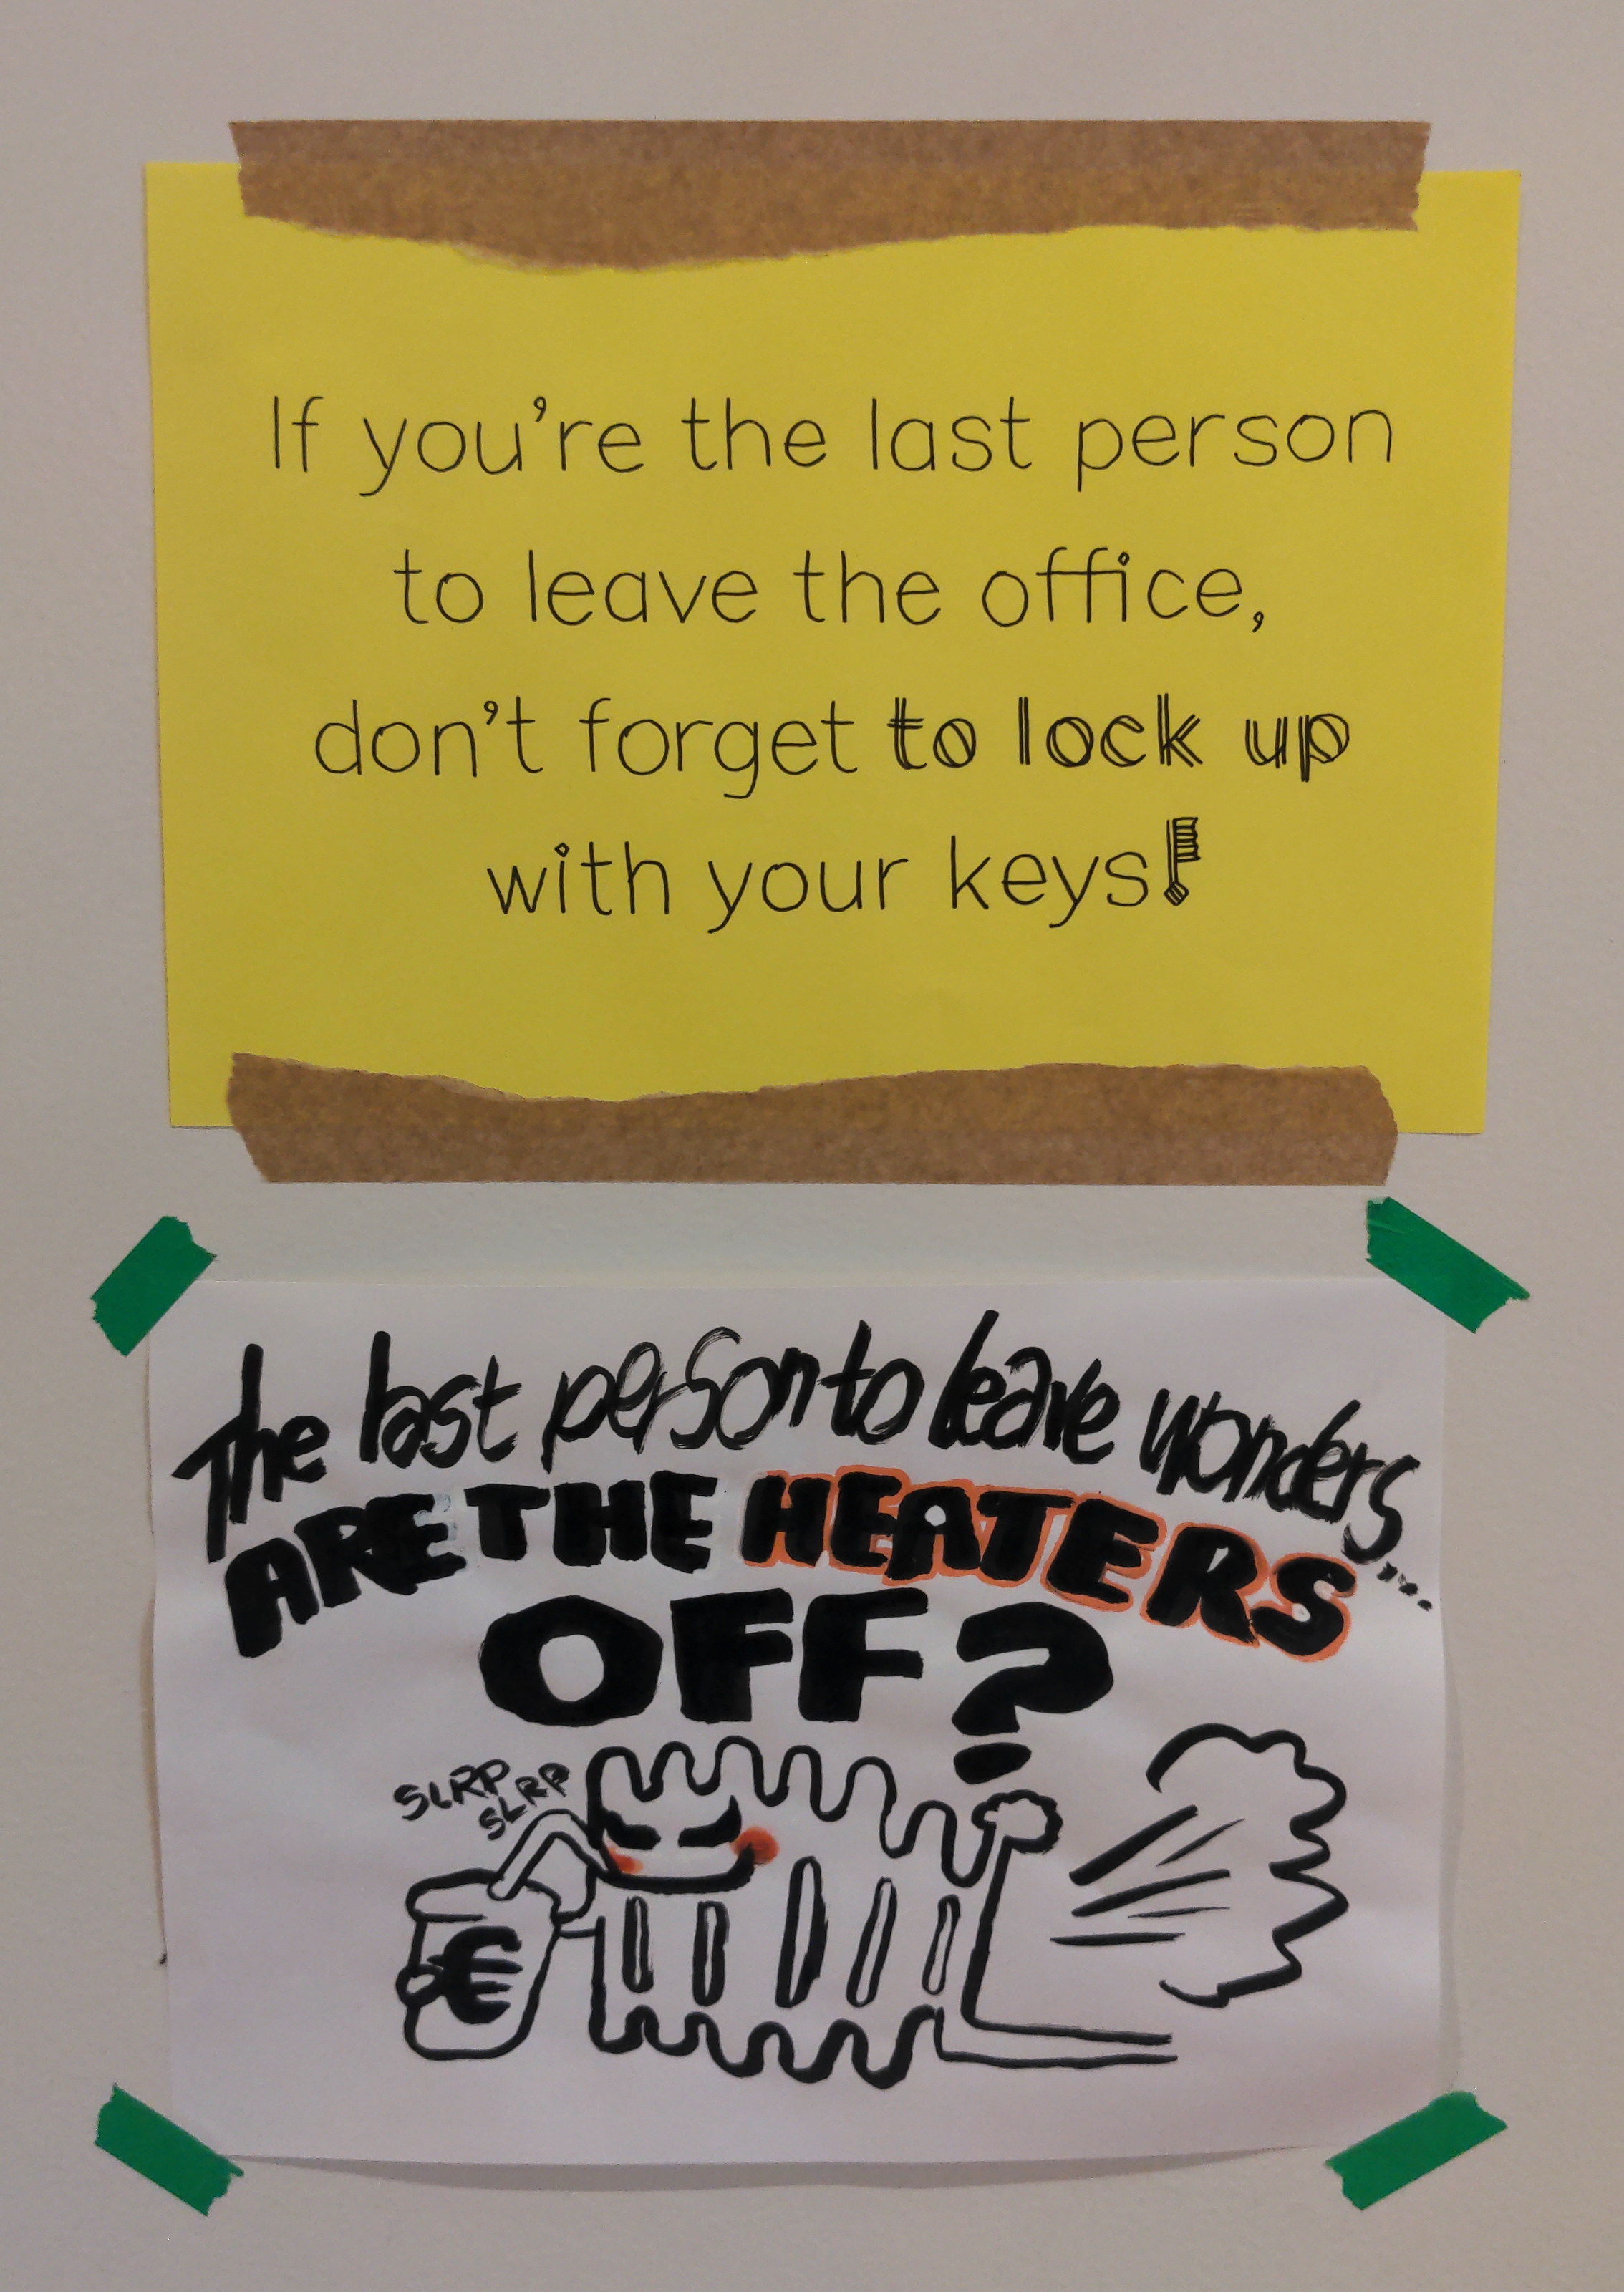 If you're the last person
to leave the office,
don't forget to lock up
with your keys!
The last person to leave wonders...
ARE THE HEATERS
OFF?
SLRP
SLRP
€